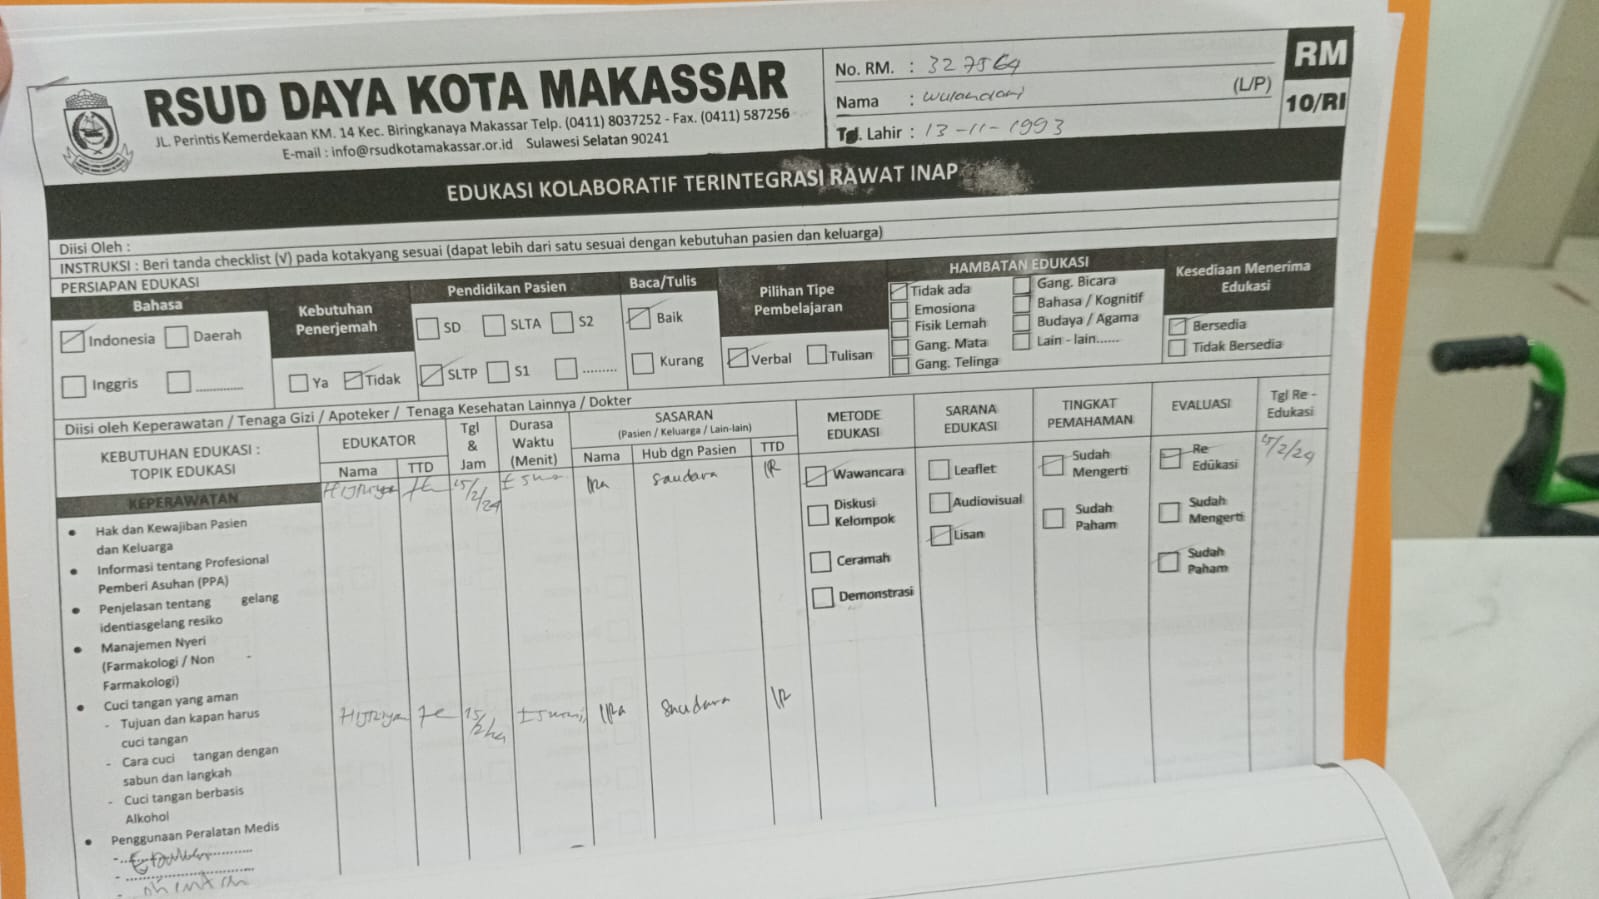 RSUD DAYA KOTA MAKASSAR
JL. Perintis Kemerdekaan KM. 14 Kec. Biringkanaya Makassar Telp. (0411) 8037252 - Fax. (0411) 587256
E-mail : info@rsudkotamakassar.or.id Sulawesi Selatan 90241
No. RM. : 327564
Nama : Wulandari (L/P)
Tgl. Lahir : 13-11-1993
RM
10/RI
EDUKASI KOLABORATIF TERINTEGRASI RAWAT INAP
Diisi Oleh :
INSTRUKSI : Beri tanda checklist (√) pada kotakyang sesuai (dapat lebih dari satu sesuai dengan kebutuhan pasien dan keluarga)
PERSIAPAN EDUKASI
Bahasa
Indonesia Daerah
Inggris ............
Kebutuhan
Penerjemah
Ya Tidak
Pendidikan Pasien
SD SLTA S2
SLTP S1 .........
Baca/Tulis
Baik
Kurang
Pilihan Tipe
Pembelajaran
Verbal Tulisan
HAMBATAN EDUKASI
Tidak ada Gang. Bicara
Emosiona Bahasa / Kognitif
Fisik Lemah Budaya / Agama
Gang. Mata Lain - lain......
Gang. Telinga
Kesediaan Menerima
Edukasi
Bersedia
Tidak Bersedia
Diisi oleh Keperawatan / Tenaga Gizi / Apoteker / Tenaga Kesehatan Lainnya / Dokter
KEBUTUHAN EDUKASI :
TOPIK EDUKASI
EDUKATOR
Nama TTD
Tgl
&
Jam
Durasa
Waktu
(Menit)
SASARAN
(Pasien / Keluarga / Lain-lain)
Nama Hub dgn Pasien TTD
METODE
EDUKASI
SARANA
EDUKASI
TINGKAT
PEMAHAMAN
EVALUASI
Tgl Re -
Edukasi
KEPERAWATAN
15/2/24 Ira Saudara IR
Wawancara
Diskusi
Kelompok
Ceramah
Demonstrasi
Leaflet
Audiovisual
Lisan
Sudah
Mengerti
Sudah
Paham
Re
Edukasi
Sudah
Mengerti
Sudah
Paham
15/2/24
Hak dan Kewajiban Pasien
dan Keluarga
Informasi tentang Profesional
Pemberi Asuhan (PPA)
Penjelasan tentang gelang
identiasgelang resiko
Manajemen Nyeri
(Farmakologi / Non -
Farmakologi)
Cuci tangan yang aman
- Tujuan dan kapan harus
cuci tangan
15/2/24 Ira Saudara IR
- Cara cuci tangan dengan
sabun dan langkah
- Cuci tangan berbasis
Alkohol
Penggunaan Peralatan Medis